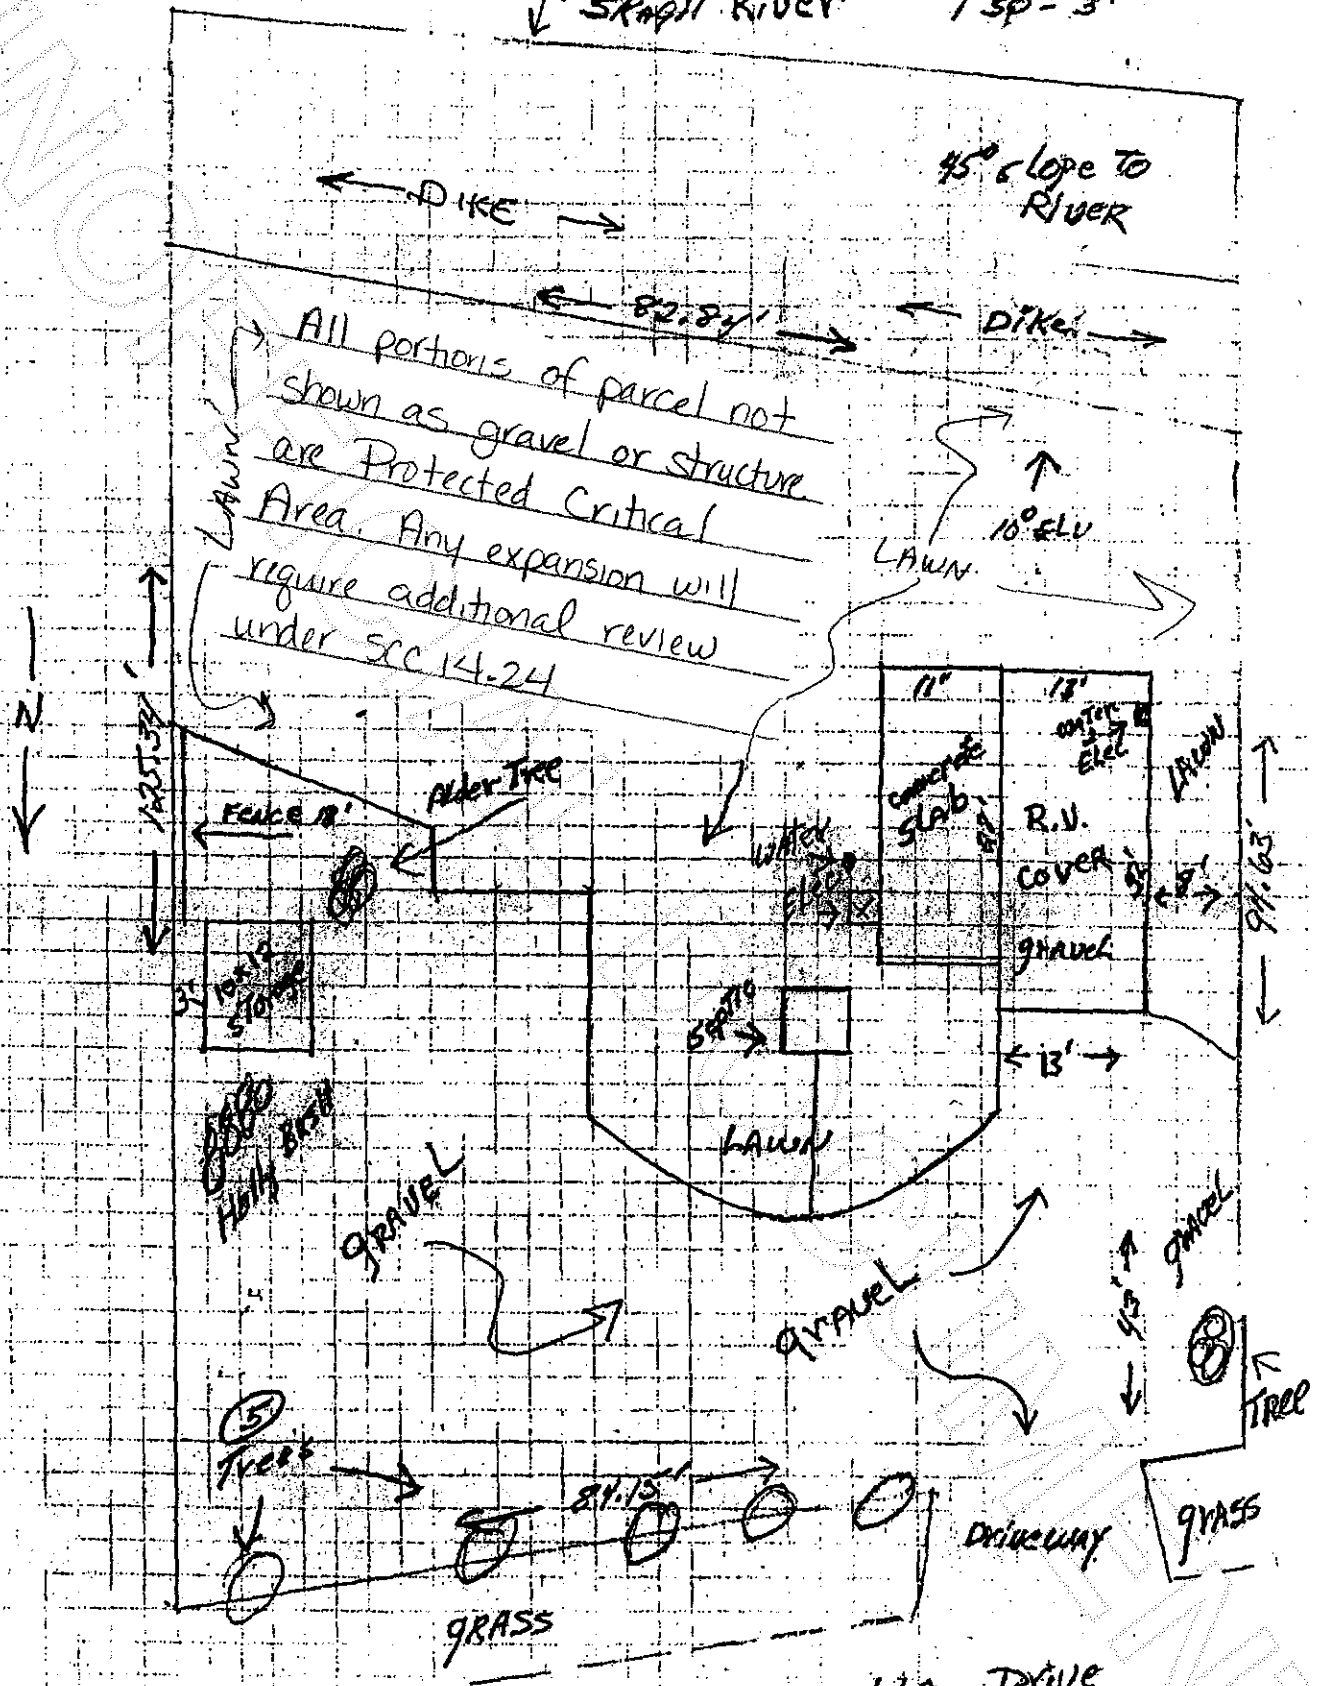 Skagit River 1 sq - 3'
45° slope to
River
DIKE
82.84'
Dike
All portions of parcel not
shown as gravel or structure
are Protected Critical
Area. Any expansion will
require additional review
under SCC 14.24
LAWN
10° ELV
LAWN
N
125.34'
11'
13'
water
Elec
LAWN
Alder Tree
Fence 18'
concrete
SLAB
R.V.
COVER
gravel
water
Elec
94.63'
10x12
Storage
3'
Septic
13'
Holly Bush
LAWN
gravel
gravel
gravel
43'
Tree
5
Trees
84.15'
Driveway
grass
grass
Drive